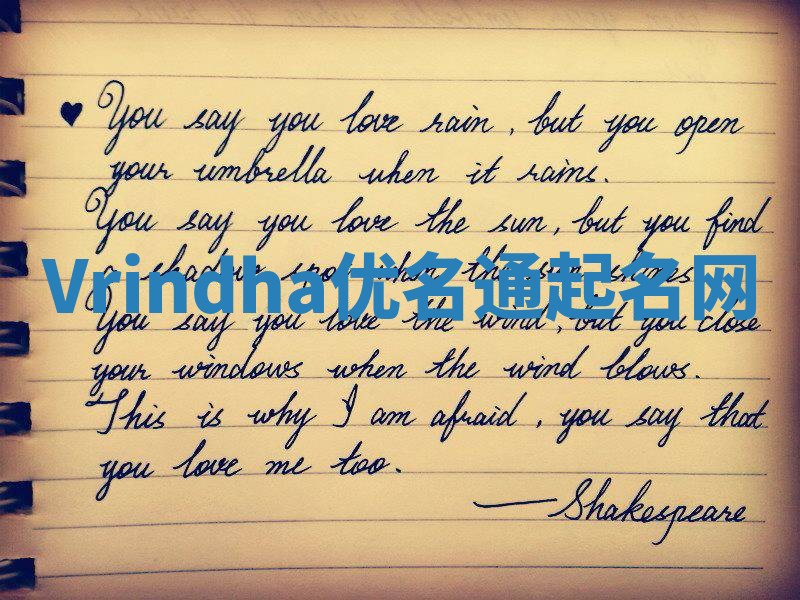 ♥ You say you love rain, but you open
your umbrella when it rains.
You say you love the sun, but you find
a shadow spot when the sun shines
Vrindha优名通起名网
You say you love the wind, but you close
your windows when the wind blows.
This is why I am afraid, you say that
you love me too.
—Shakespeare